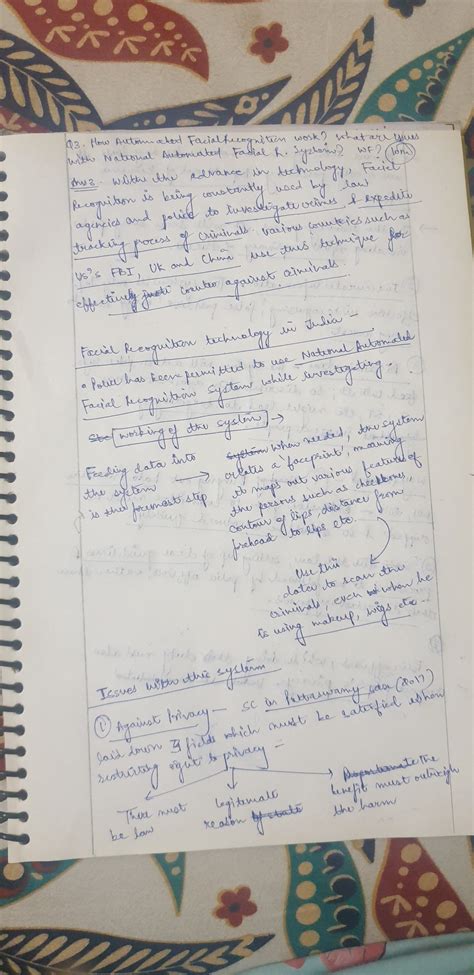 Q3. How Automated Facial Recognition work? What are issues
with National Automated Facial R. System? WF?
Ans 3. With the advance in technology, Facial
Recognition is being constantly used by law
agencies and police to investigate crimes & expedite
tracking process of criminals. Various countries such as
US's FBI, UK and China use this technique for
effectively counter against criminals.
Facial Recognition technology in India -
Police has been permitted to use National Automated
Facial Recognition System while investigating.
working of the system
Feeding data into
the system
is the foremost step
System when needed, the system
creates a 'faceprint', meaning
it maps out various features of
the persons such as cheekbones,
contour of lips, distance from
forehead to lips etc.
Use this
data to scan the
criminals, even when he
is using makeup, wigs, etc -
Issues with this system
1) Against Privacy - SC in Puttaswamy case (2017)
laid down 3 fields which must be satisfied when
restricting right to privacy -
There must
be law
legitimate
reason of state
the
benefit must outweigh
the harm